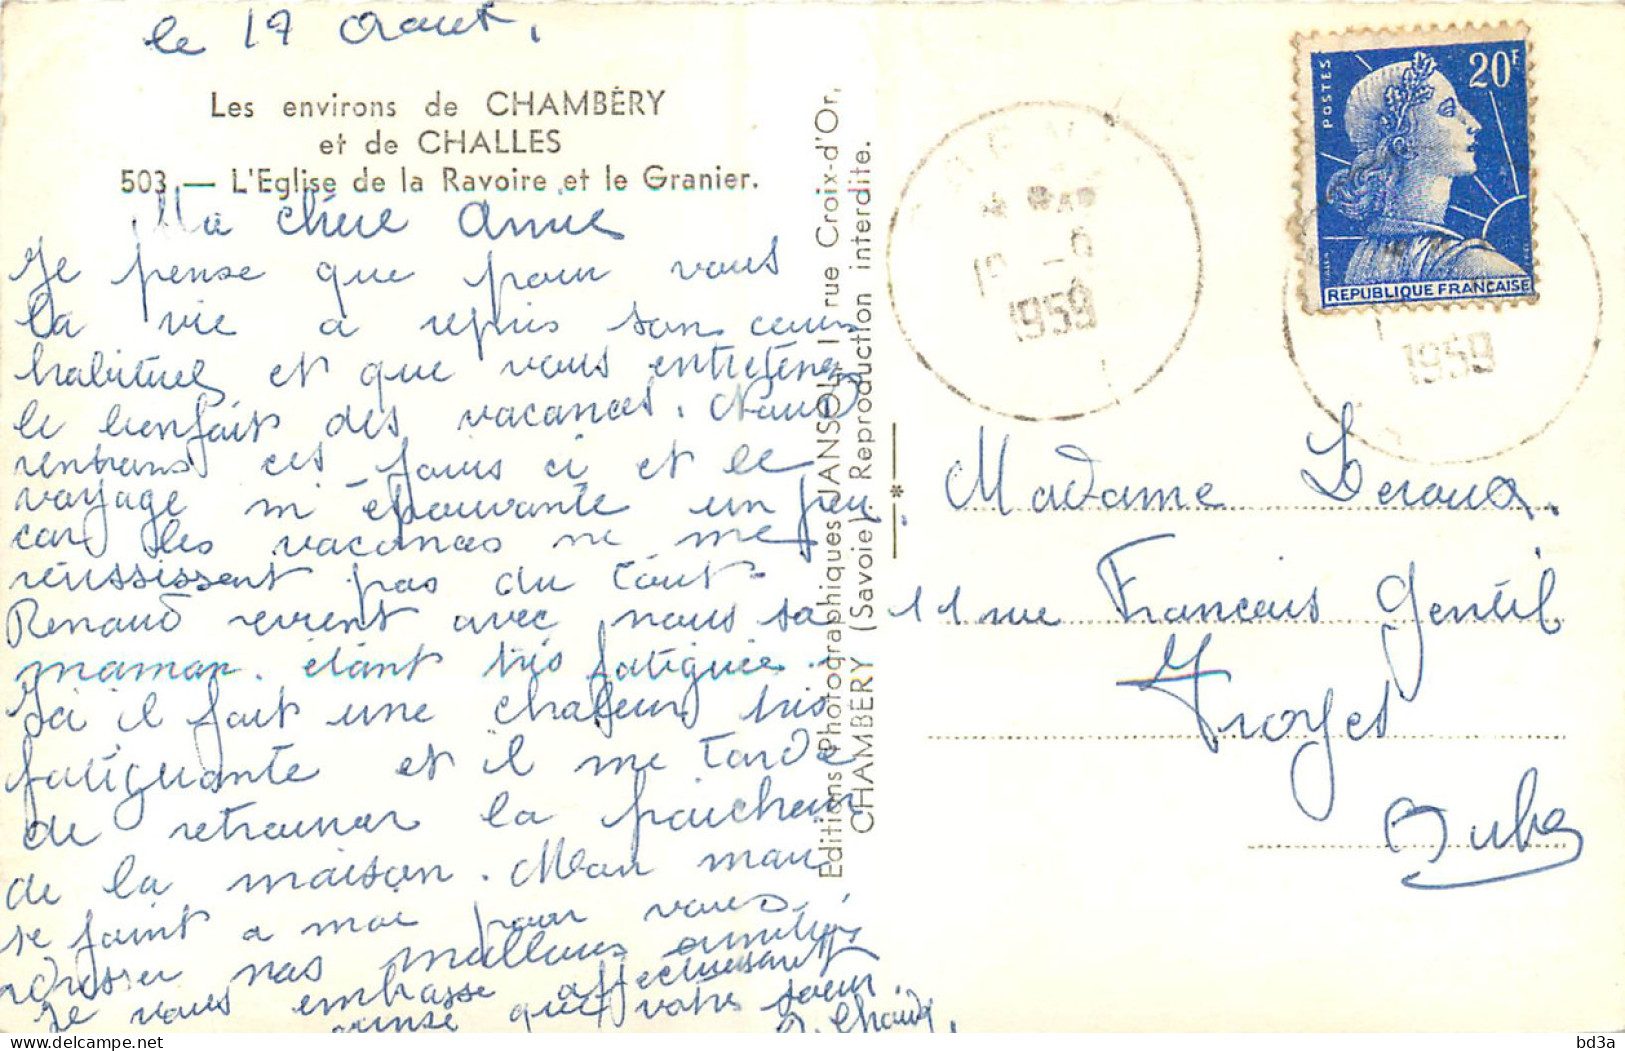 le 17 Aout.
Les environs de CHAMBÉRY
et de CHALLES
503 — L'Eglise de la Ravoire et le Granier.
Ma chère Annie
Je pense que pour vous
la vie a repris son cours
habituel et que vous entretenez
le bienfait des vacances. Nous
rentrons ces jours ci et le
voyage m'épouvante un peu
car les vacances ne me
réussissent pas du tout.
Renaud revient avec nous sa
maman étant très fatiguée.
Ici il fait une chaleur très
fatiguante et il me tarde
de retrouver la fraicheur
de la maison. Mon mari
se joint a moi pour vous
adresser nos meilleures amitiés
Je vous embrasse affectueusement
ainsi que votre soeur.
Editions Photographiques JANSOL, 1 rue Croix-d'Or,
CHAMBÉRY (Savoie). Reproduction interdite.
POSTES
20F
REPUBLIQUE FRANÇAISE
1959
1959
Madame Leroux.
11 rue Francois Gentil
Troyes
Aube
bd3a